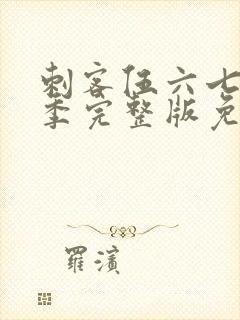 刺客伍六七
季完整版免
羅濱